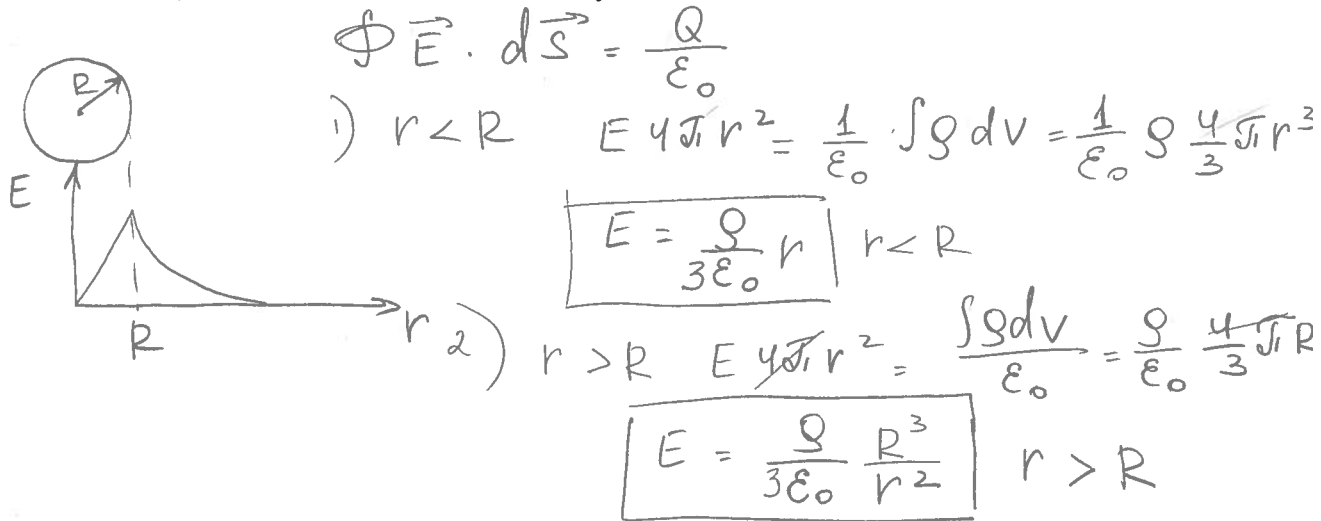 ∮ E⃗ · dS⃗ = Q/ε₀
R
1) r < R   E 4π r² = 1/ε₀ · ∫ρ dv = 1/ε₀ ρ 4/3 π r³
E
E = ρ/3ε₀ r   r < R
R
r
2) r > R   E 4π r² = ∫ρdv/ε₀ = ρ/ε₀ 4/3 π R
E = ρ/3ε₀ R³/r²   r > R